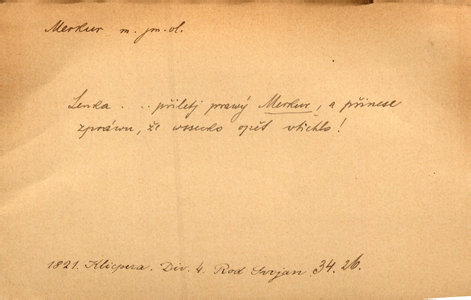 Merkur m. jm. vl.
Lenka . . . přiletj prawý Merkur, a přinese
zpráwu, že wssecko opět utichlo!
1821. Klicpera. Div. 4. Rod Svojan. 34. 26.